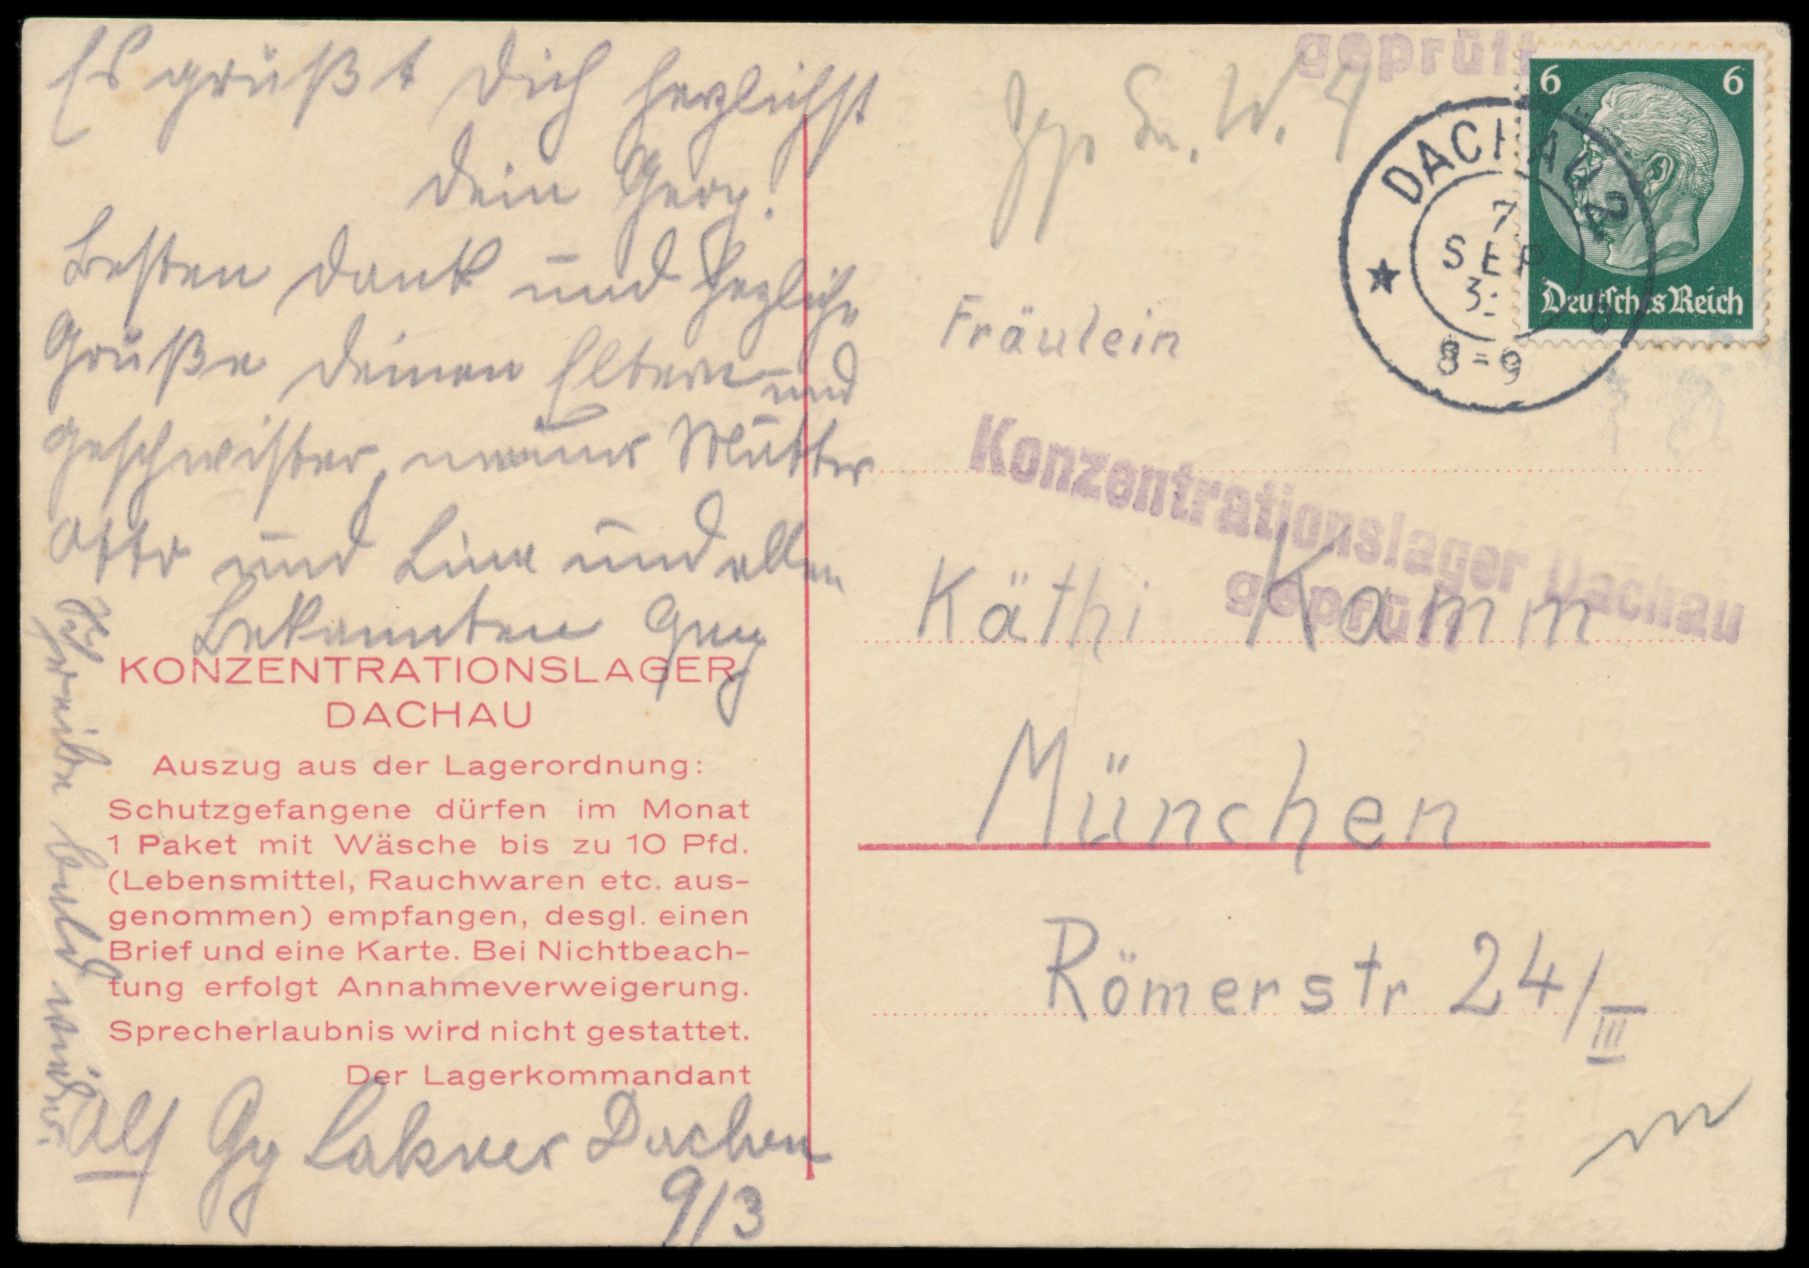 Es grüßt Dich herzlichst
Dein Georg.
Besten Dank und herzliche
Grüße Deinen Eltern und
Geschwister, meiner Mutter
Otto und Lina und allen
Bekannten
Schreibe bald wieder.
KONZENTRATIONSLAGER
DACHAU
Auszug aus der Lagerordnung:
Schutzgefangene dürfen im Monat
1 Paket mit Wäsche bis zu 10 Pfd.
(Lebensmittel, Rauchwaren etc. aus-
genommen) empfangen, desgl. einen
Brief und eine Karte. Bei Nichtbeach-
tung erfolgt Annahmeverweigerung.
Sprecherlaubnis wird nicht gestattet.
Der Lagerkommandant
Abs Gg Lakner Dachau
9/3
geprüft
6 6
Deutsches Reich
DACHAU 2
7
SEP
8-9
Fräulein
Konzentrationslager Dachau
geprüft
Käthi Kamm
München
Römerstr 24/III